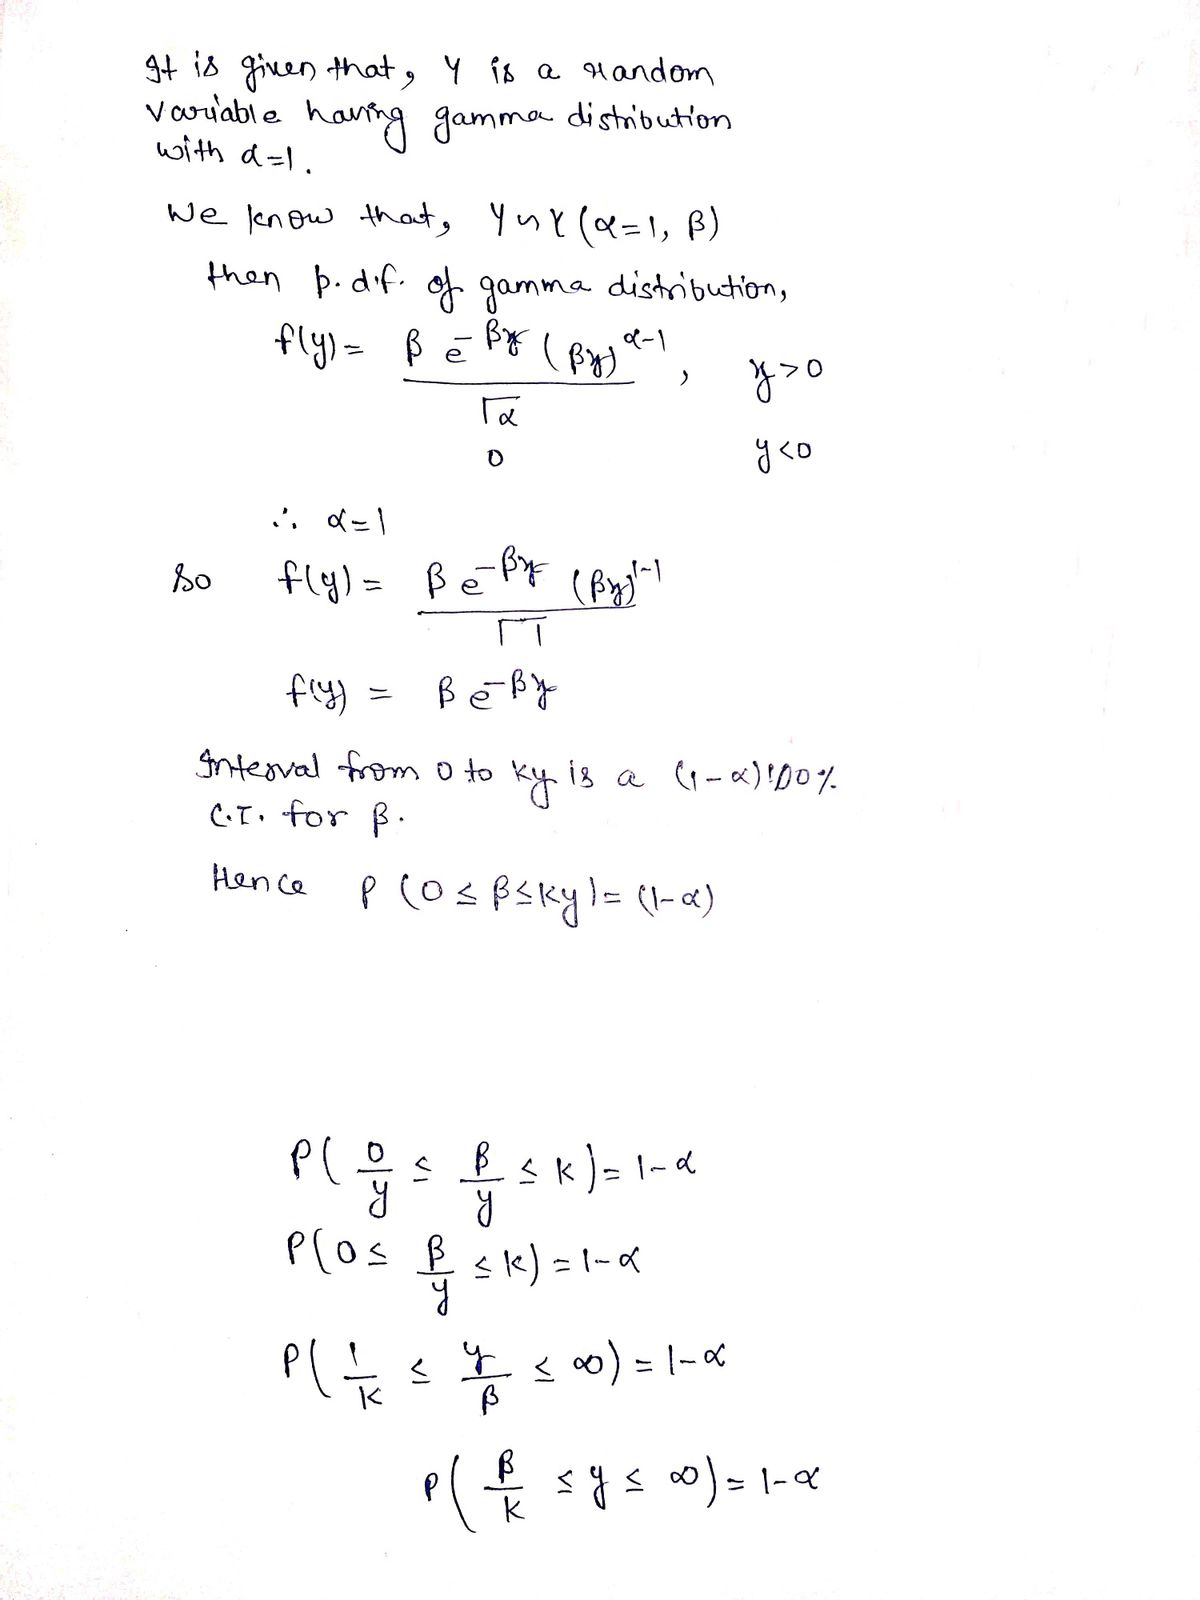 It is given that, Y is a random
variable having gamma distribution
with α=1.
We know that, Y ~ γ(α=1, β)
then p.d.f. of gamma distribution,
f(y) = β e^{-βy} (βy)^{α-1} / Γα , y>0
0 y<0
∴ α=1
So f(y) = β e^{-βy} (βy)^{1-1} / Γ1
f(y) = β e^{-βy}
Interval from 0 to ky is a (1-α)100%
C.I. for β.
Hence P(0 ≤ β ≤ ky) = (1-α)
P(0/y ≤ β/y ≤ k) = 1-α
P(0 ≤ β/y ≤ k) = 1-α
P(1/k ≤ y/β ≤ ∞) = 1-α
P(β/k ≤ y ≤ ∞) = 1-α